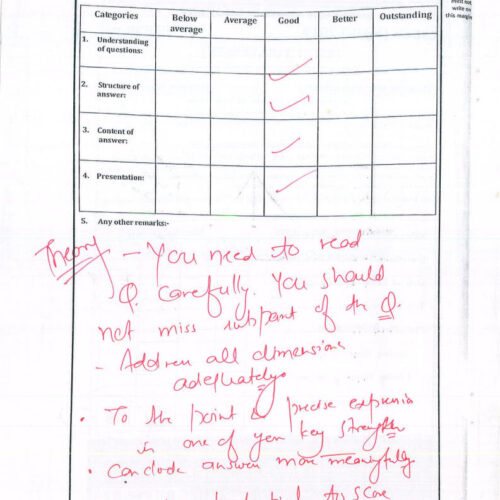 must not
write on
this margin
Categories Below average Average Good Better Outstanding
1. Understanding of questions:
2. Structure of answer:
3. Content of answer:
4. Presentation:
5. Any other remarks:-
Theory - You need to read
Q. Carefully. You should
not miss subpart of the Q.
- Address all dimensions
adequately.
• To the point & precise expression
is one of your key strength
• Conclude answer more meaningfully
to score